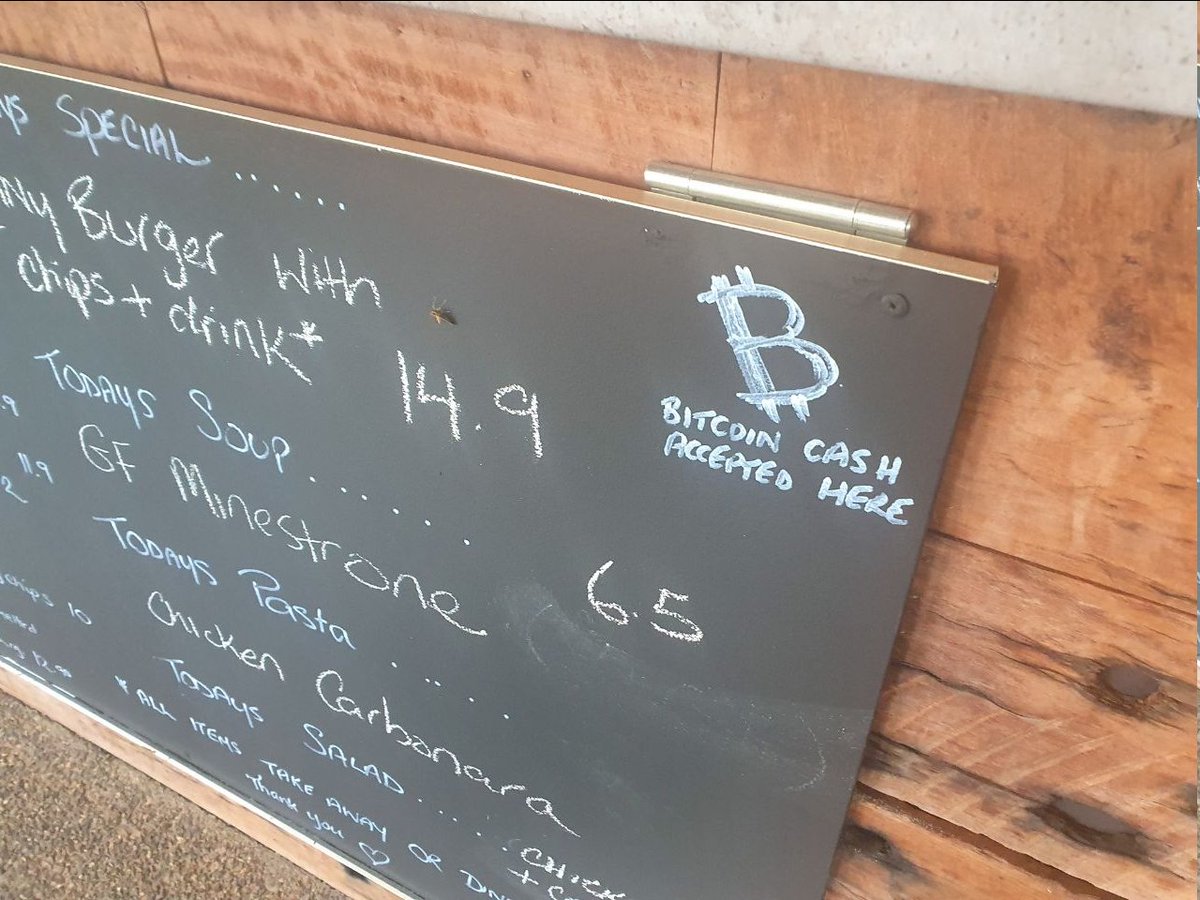 SPECIAL ......
Burger with
chips + drink*
14.9
TODAYS SOUP ......
.9
GF Minestrone
6.5
11.9
2
TODAYS Pasta ......
Chicken Carbonara
chips 10
TODAYS SALAD ......
CHICK
+
* ALL ITEMS TAKE AWAY OR DIN
Thank you ♡
B
BITCOIN CASH
ACCEPTED HERE